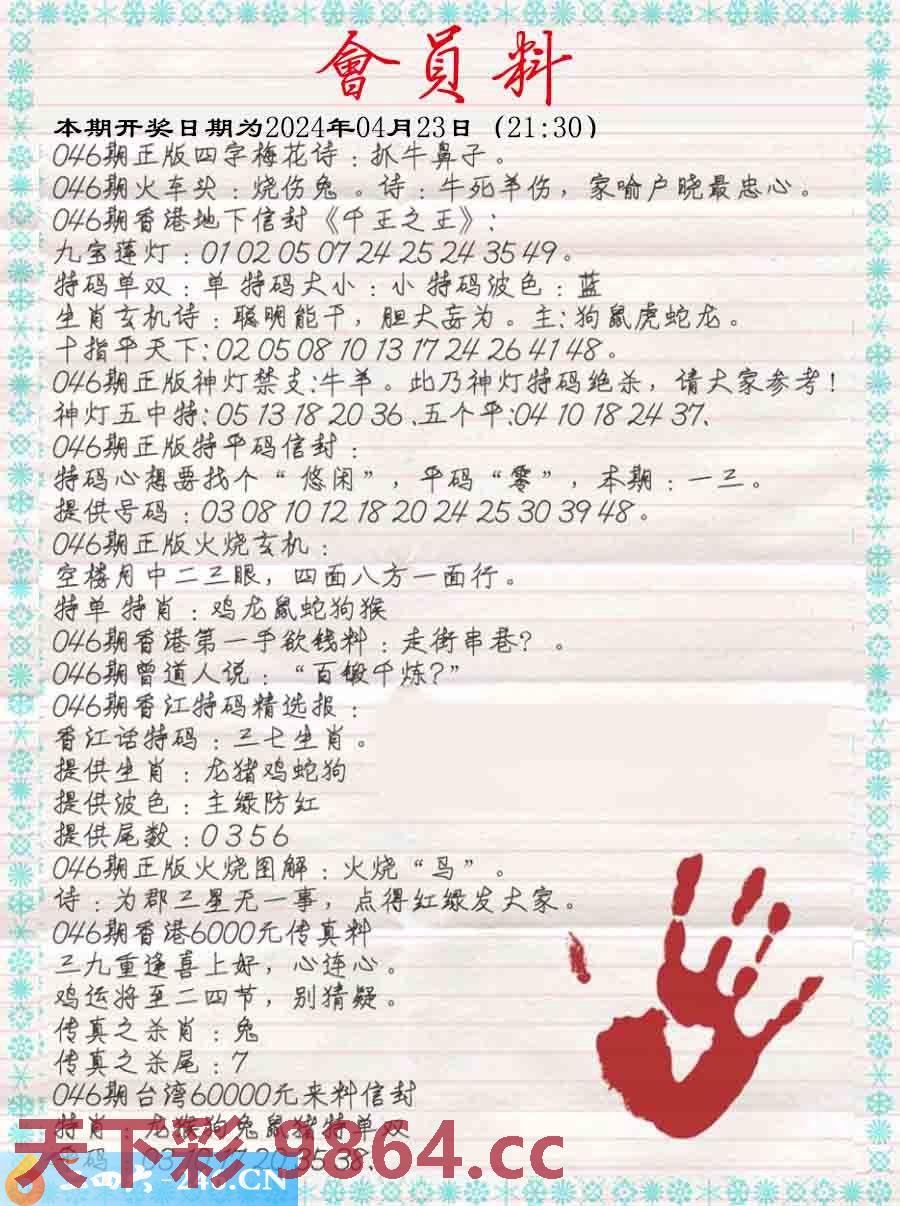 會員料
本期开奖日期为2024年04月23日（21:30）
046期正版四字梅花诗：抓牛鼻子。
046期火车头：烧伤兔。诗：牛死羊伤，家喻户晓最忠心。
046期香港地下信封《千王之王》：
九宝莲灯：01 02 05 07 24 25 24 35 49。
特码单双：单 特码大小：小 特码波色：蓝
生肖玄机诗：聪明能干，胆大妄为。主：狗鼠虎蛇龙。
十指平天下：02 05 08 10 13 17 24 26 41 48。
046期正版神灯禁支：牛羊。此乃神灯特码绝杀，请大家参考！
神灯五中特：05 13 18 20 36、五个平：04 10 18 24 37、
046期正版特平码信封：
特码心想要找个“悠闲”，平码“零”，本期：一三。
提供号码：03 08 10 12 18 20 24 25 30 39 48。
046期正版火烧玄机：
空楼月中二三眼，四面八方一面行。
特单 特肖：鸡龙鼠蛇狗猴
046期香港第一手欲钱料：走街串巷？。
046期曾道人说：“百锻千炼？”
046期香江特码精选报：
香江话特码：三七生肖。
提供生肖：龙猪鸡蛇狗
提供波色：主绿防红
提供尾数：0 3 5 6
046期正版火烧图解：火烧“鸟”。
诗：为郡三星无一事，点得红绿发大家。
046期香港6000元传真料
三九重逢喜上好，心连心。
鸡运将至二四节，别猜疑。
传真之杀肖：兔
传真之杀尾：7
046期台湾60000元来料信封
特肖：龙猴狗兔鼠猪特单双
天下彩.9864.cc
35 38、
-246.CN